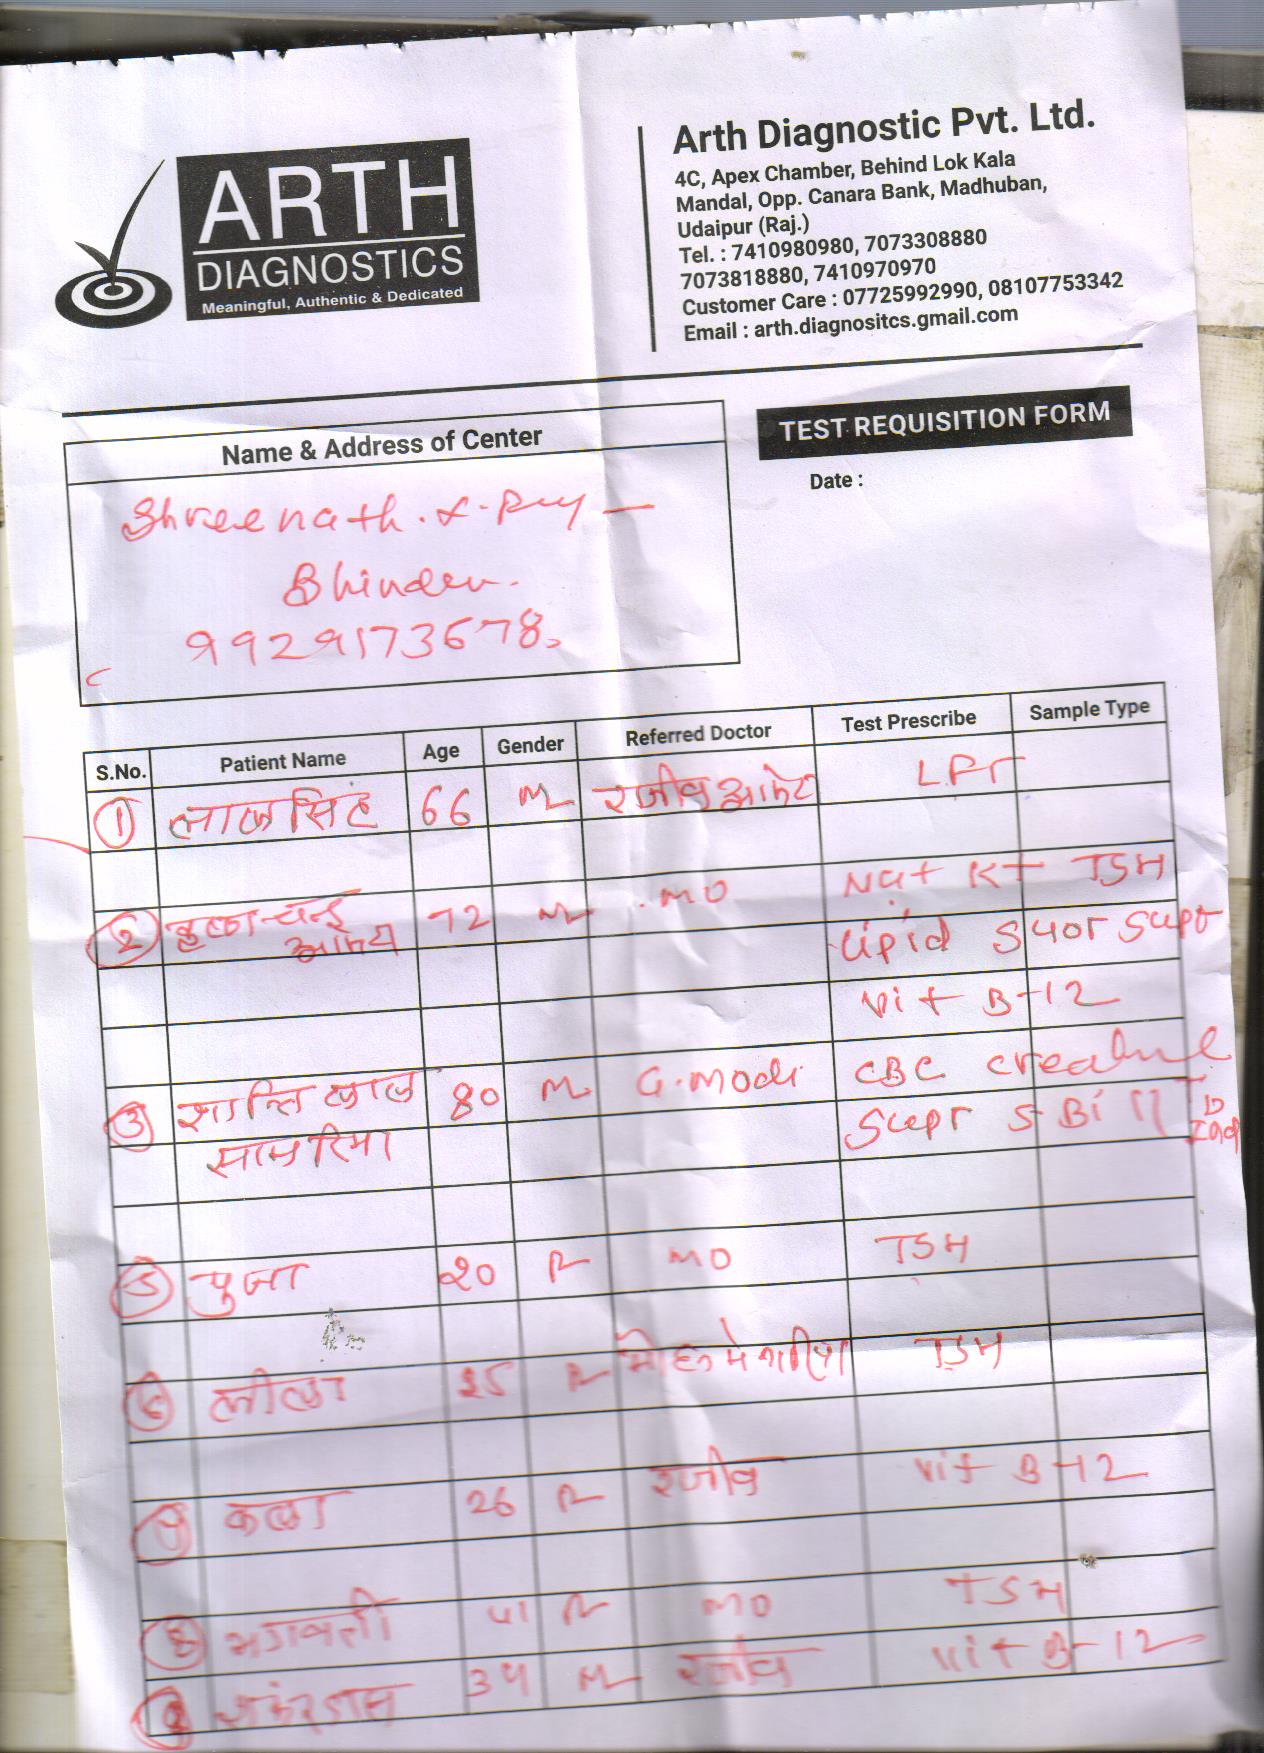 ARTH
DIAGNOSTICS
Meaningful, Authentic & Dedicated
Arth Diagnostic Pvt. Ltd.
4C, Apex Chamber, Behind Lok Kala
Mandal, Opp. Canara Bank, Madhuban,
Udaipur (Raj.)
Tel. : 7410980980, 7073308880
7073818880, 7410970970
Customer Care : 07725992990, 08107753342
Email : arth.diagnositcs.gmail.com
TEST REQUISITION FORM
Date :
Name & Address of Center
Shreenath.
Bhinder.
9929173678
S.No. Patient Name Age Gender Referred Doctor Test Prescribe Sample Type
1 लाल सिंह 66 M राजीव आमेटा LFT
2 72 M MO Na+ K+ TSH
Lipid SGOT SGPT
Vit B-12
3 शान्ति लाल 80 M G. Modi CBC
SGPT S Bil T
D
Ind
5 पुजा 20 F MO TSH
6 लीला 35 F TSH
7 कला 26 F राजीव Vit B-12
8 भगवती 41 F MO TSH
9 34 M राजीव Vit B-12